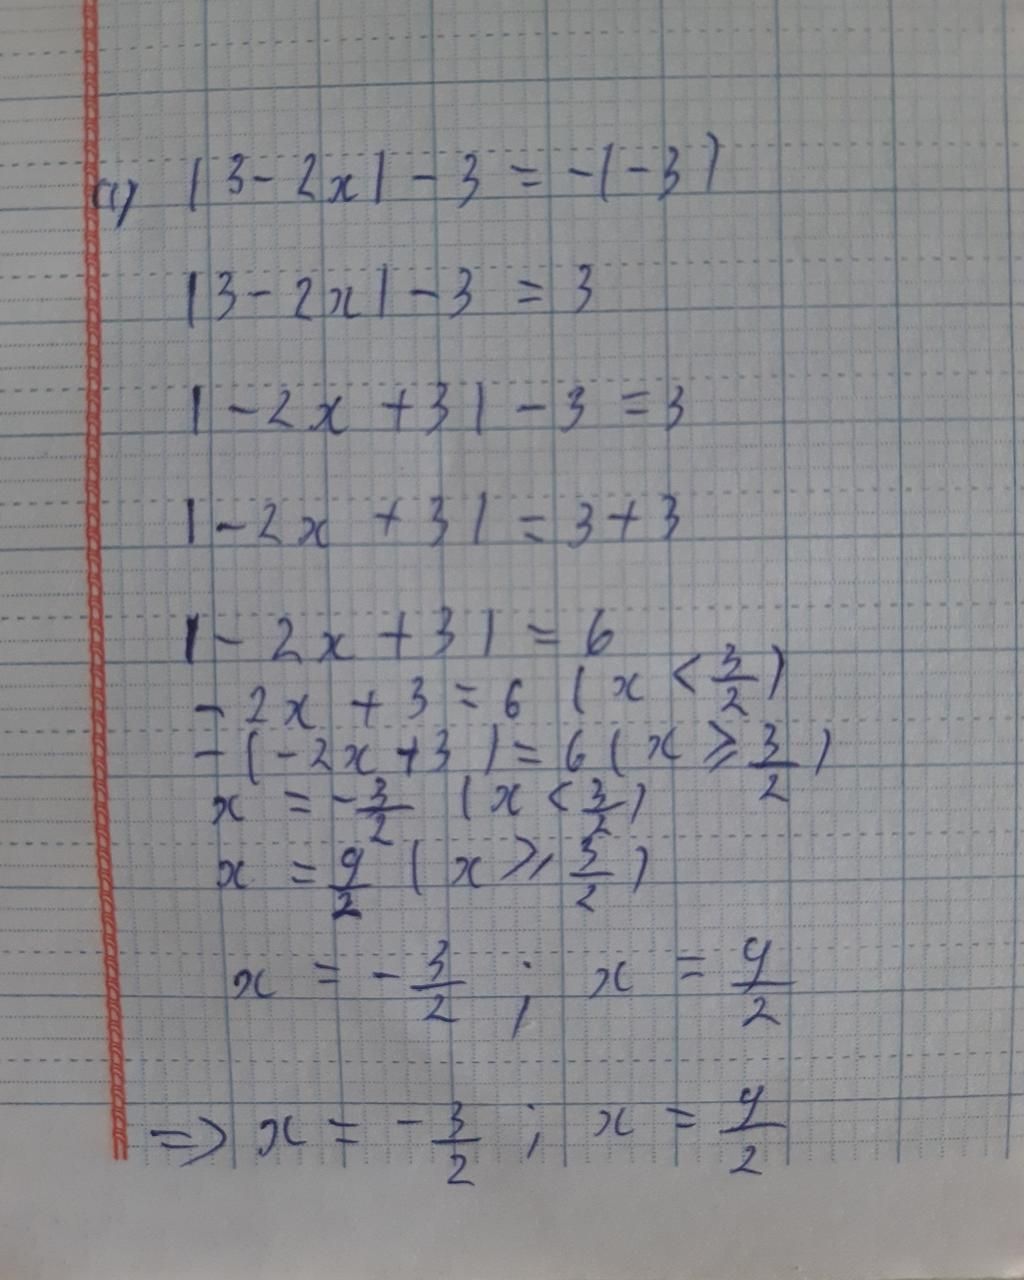 (1) |3-2x|-3=-(-3)
|3-2x|-3=3
|-2x+3|-3=3
|-2x+3|=3+3
|-2x+3|=6
-2x+3=6 (x<3/2)
-(-2x+3)=6 (x≥3/2)
x=-3/2 (x<3/2)
x=9/2 (x≥3/2)
x=-3/2 ; x=9/2
=> x=-3/2 ; x=9/2